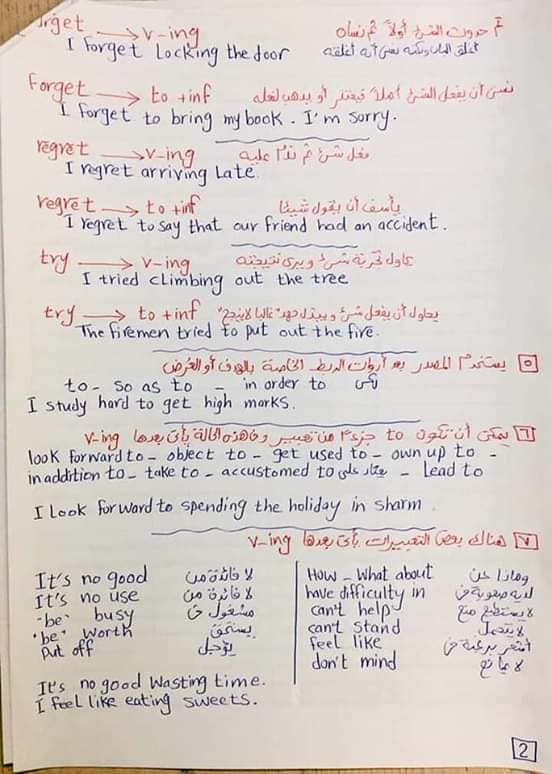 forget → v-ing حدوث الشئ أولاً ثم نساه
I forget Locking the door أغلق الباب ولكنه نسى أنه أغلقه
Forget → to + inf نسى أن يفعل الشئ أصلاً فيعتذر أو يذهب لفعله
I forget to bring my book. I'm sorry.
regret → v-ing فعل شئ ثم ندم عليه
I regret arriving Late.
regret → to + inf يأسف أن يقول شيئا
I regret to say that our friend had an accident.
try → v-ing يحاول تجربة شئ ويرى نتيجته
I tried climbing out the tree
try → to + inf يحاول أن يفعل شئ ويبذل جهد "غالبا لا ينجح"
The firemen tried to put out the fire.
٥ يستخدم المصدر بعد أدوات الربط الخاصة بالهدف أو الغرض
to - so as to - in order to لكى
I study hard to get high marks.
٦ يمكن أن تكون to جزء من تعبير وفى هذه الحالة يأتى بعدها v-ing
look forward to - object to - get used to - own up to -
in addition to - take to - accustomed to معتاد على - Lead to
I Look forward to spending the holiday in sharm.
٧ هناك بعض التعبيرات يأتى بعدها v-ing
It's no good لا فائدة من
It's no use لا فائدة من
"be" busy مشغول فى
"be" worth يستحق
Put off يؤجل
It's no good wasting time.
I feel like eating sweets.
How - What about وماذا عن
have difficulty in لديه صعوبة فى
can't help لا يستطيع منع
can't stand لا يتحمل
feel like أشعر برغبة فى
don't mind لا يمانع
2